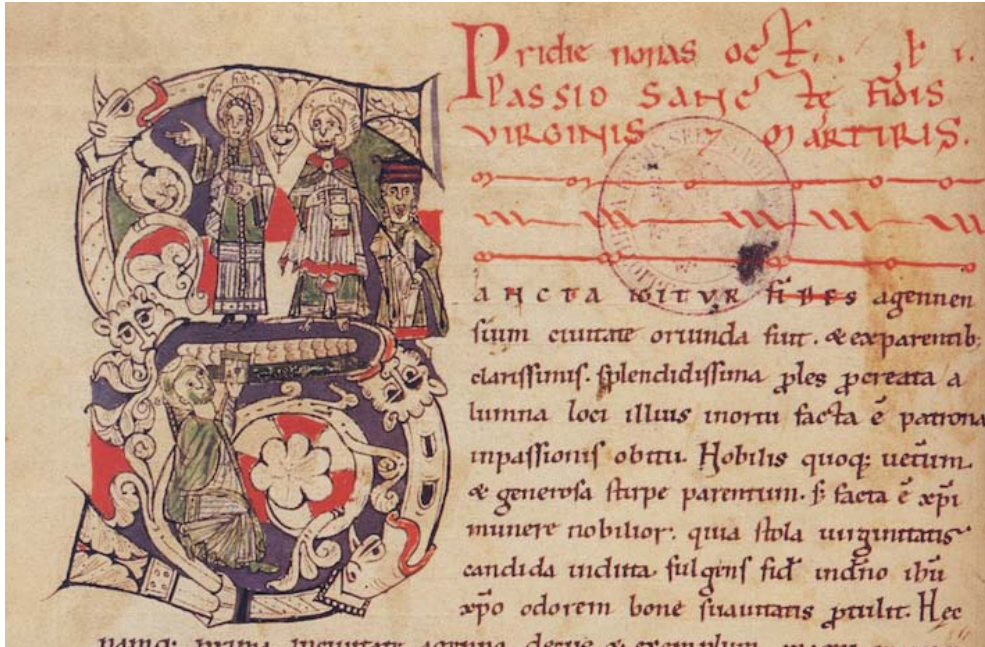 Pridie nonas oct.
Passio sancte fidis
virginis 7 martiris.
s. fides
s. Capr
ancta igitur fides agennen
sium ciuitate oriunda fuit. & exparentib;
clarissimis. splendidissima ples pcreata a
lumna loci illius inortu facta ē patrona
inpassionis obitu. Nobilis quoq; uetum
& generosa stirpe parentum. s; facta ē xp̄i
munere nobilior. quia stola uirginitatis
candida induta. fulgens fid' indn̄o ihū
xp̄o odorem bone suauitatis ptulit. Hec
namq; prima inciuitate agenna decus & exemplum